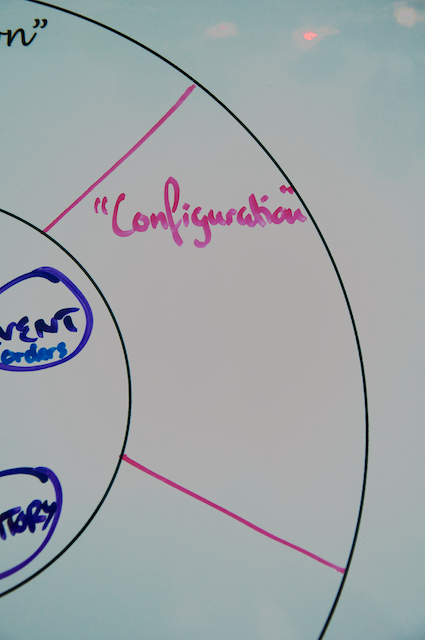 on"
"Configuration"
VENT
orders
TORY